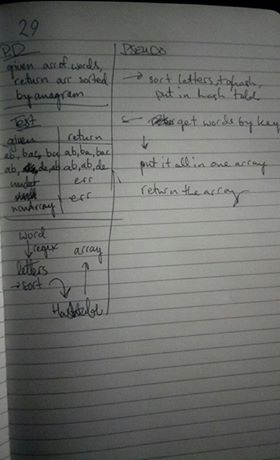 29
PD
given arr of words,
return arr sorted
by anagram
Test
given return
ab, bac, ba ab, ba, bac
ab, de, ab ab, ab, de
err
nonarray err
word
→ regex
letters
→ sort
array
Hashtable
PSEUDO
→ sort letters, to hash,
put in hash table
get words by key
put it all in one array
return the array